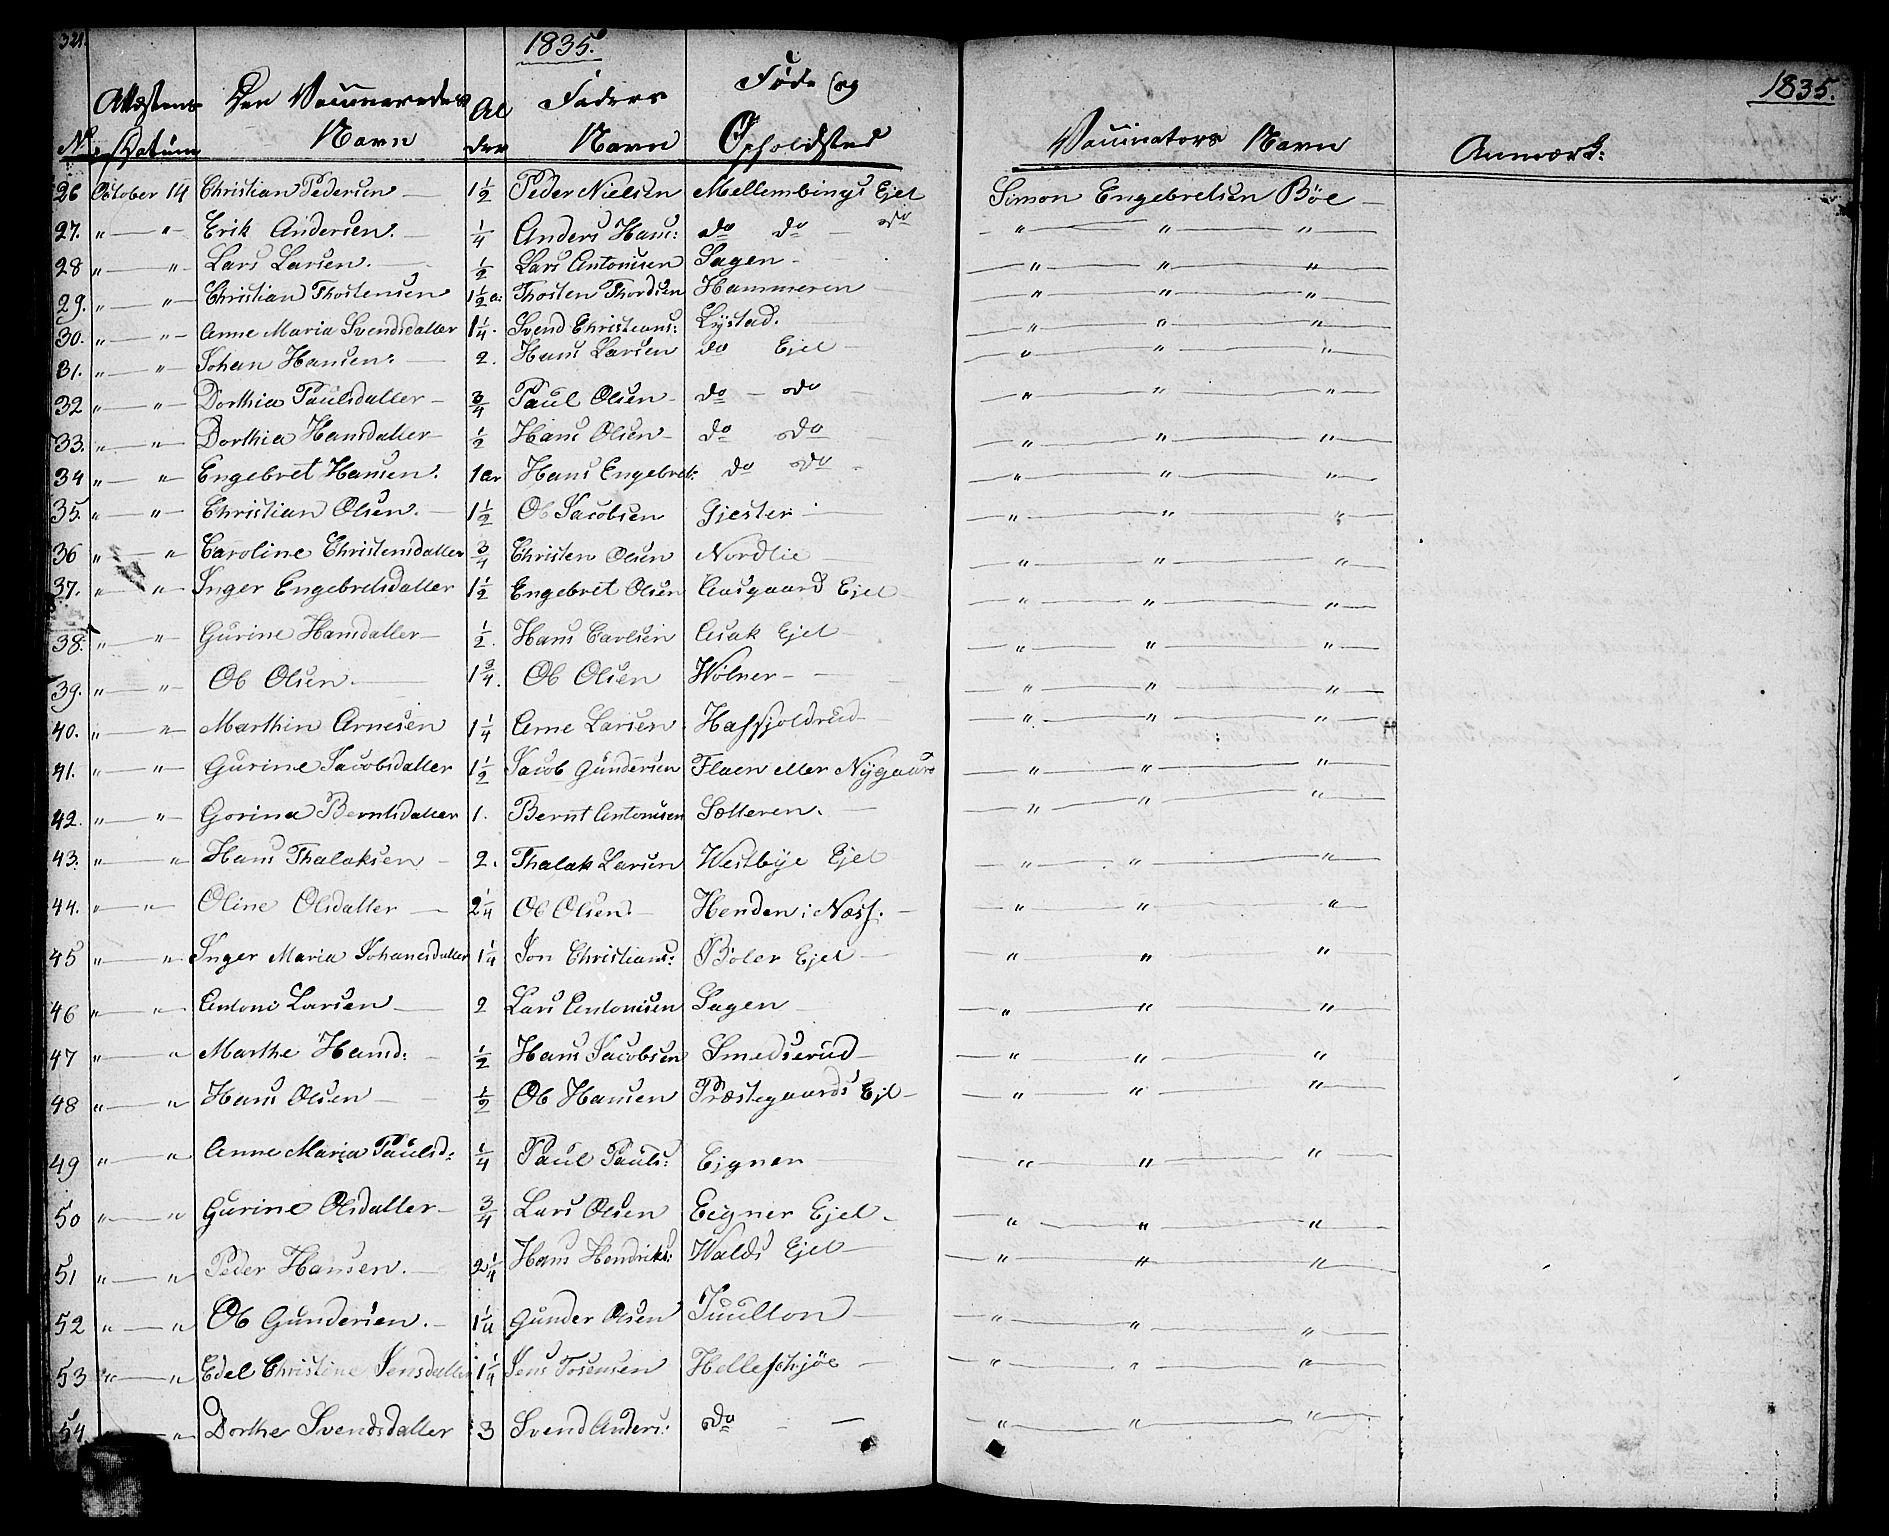 321.
1835.
1835.
No. Attestens Datum Den Vaccineredes Navn Alder Faders Navn Føde og Opholdsted Vaccinators Navn Anmærk:
26 October 14 Christian Pedersen — 1½ Peder Nielsen Mellembings Ejet Simon Engebretsen Böe —
27. " — " Erik Andersen. — ¼ Anders Hans: do do — do — " — " — "
28 " — " Lars Larsen. — ½ Lars Antonisen Sagen — — " — " — "
29. " — " Christian Thostensen 1½ a: Thosten Thordsen Hammeren — — " — " — "
30. " — " Anne Maria Svendsdatter 1¼. Svend Christians: Lÿstad. — — " — " — "
31. " — " Johan Hansen: — 2. Hans Larsen do Ejet — — " — " — "
32 " — " Dorthia Paulsdatter — ¾ Paul Olsen — do — do — — " — " — "
33. " — " Dorthia Hansdatter — ½ Hans Olsen — do do — — " — " — "
34 " — " Engebret Hansen. 1 ar Hans Engebret: do do — — " — " — "
35. " — " Christian Olsen. — 1½ Ole Jacobsen Gjester — — " — " — "
36 " — " Caroline Christensdatter ¾ Christen Olsen Nordlie — — " — " — "
37. " — " Inger Engebretsdatter 1½ Engebret Olsen Aasgaard Ejet — — " — " — "
38. " — " Gurine Hansdatter — ½. Hans Carlsen Asak Ejet — — " — " — "
39. " — " Ole Olsen. — 1¾. Ole Olsen Wölner — — " — " — "
40. " — " Marthin Arnesen 1¼ Arne Larsen Hafsjoldrud — — " — " — "
41. " — " Gurine Jacobsdatter 1½ Jacob Gundersen Flaen eller Nÿgaard — " — " — "
42. " — " Gorina Berntsdatter 1. Bernt Antonisen Sætteren. — — " — " — "
43. " — " Hans Thalaksen — 2. Thalak Larsen Westbÿe Ejet — " — " — "
44. " — " Oline Olsdatter — 2¼ Ole Olsen — Henden i Næss. — — " — " — "
45 " — " Inger Maria Johanesdatter 1¼ Jon Christians: Böler Ejet — — " — " — "
46 " — " Antoni Larsen — 2 Lars Antonisen Sagen — — " — " — "
47 " — " Marthe Hansd: — ½ Hans Jacobsen Smedserud — — " — " — "
48 " — " Hans Olsen — ½ Ole Hansen Præstegaards Ejt — — " — " — "
49 " — " Anne Maria Paulsd: ¼ Paul Pauls: Eigner — — " — " — "
50 " — " Gurine Olsdatter — ¾ Lars Olsen Eigner Ejet — — " — " — "
51 " — " Peder Hansen. — 2¼ Hans Hendriks: Walds Ejet — — " — " — "
52 " — " Ole Gundersen. — 1¼ Gunder Olsen Juulton — — " — " — "
53 " — " Edel Christine Jensdatter 1¼ Jens Tosensen Helleschjöe — — " — " — "
54. " — " Dorthe Svendsdatter 3 Svend Anders: do — — " — " — "